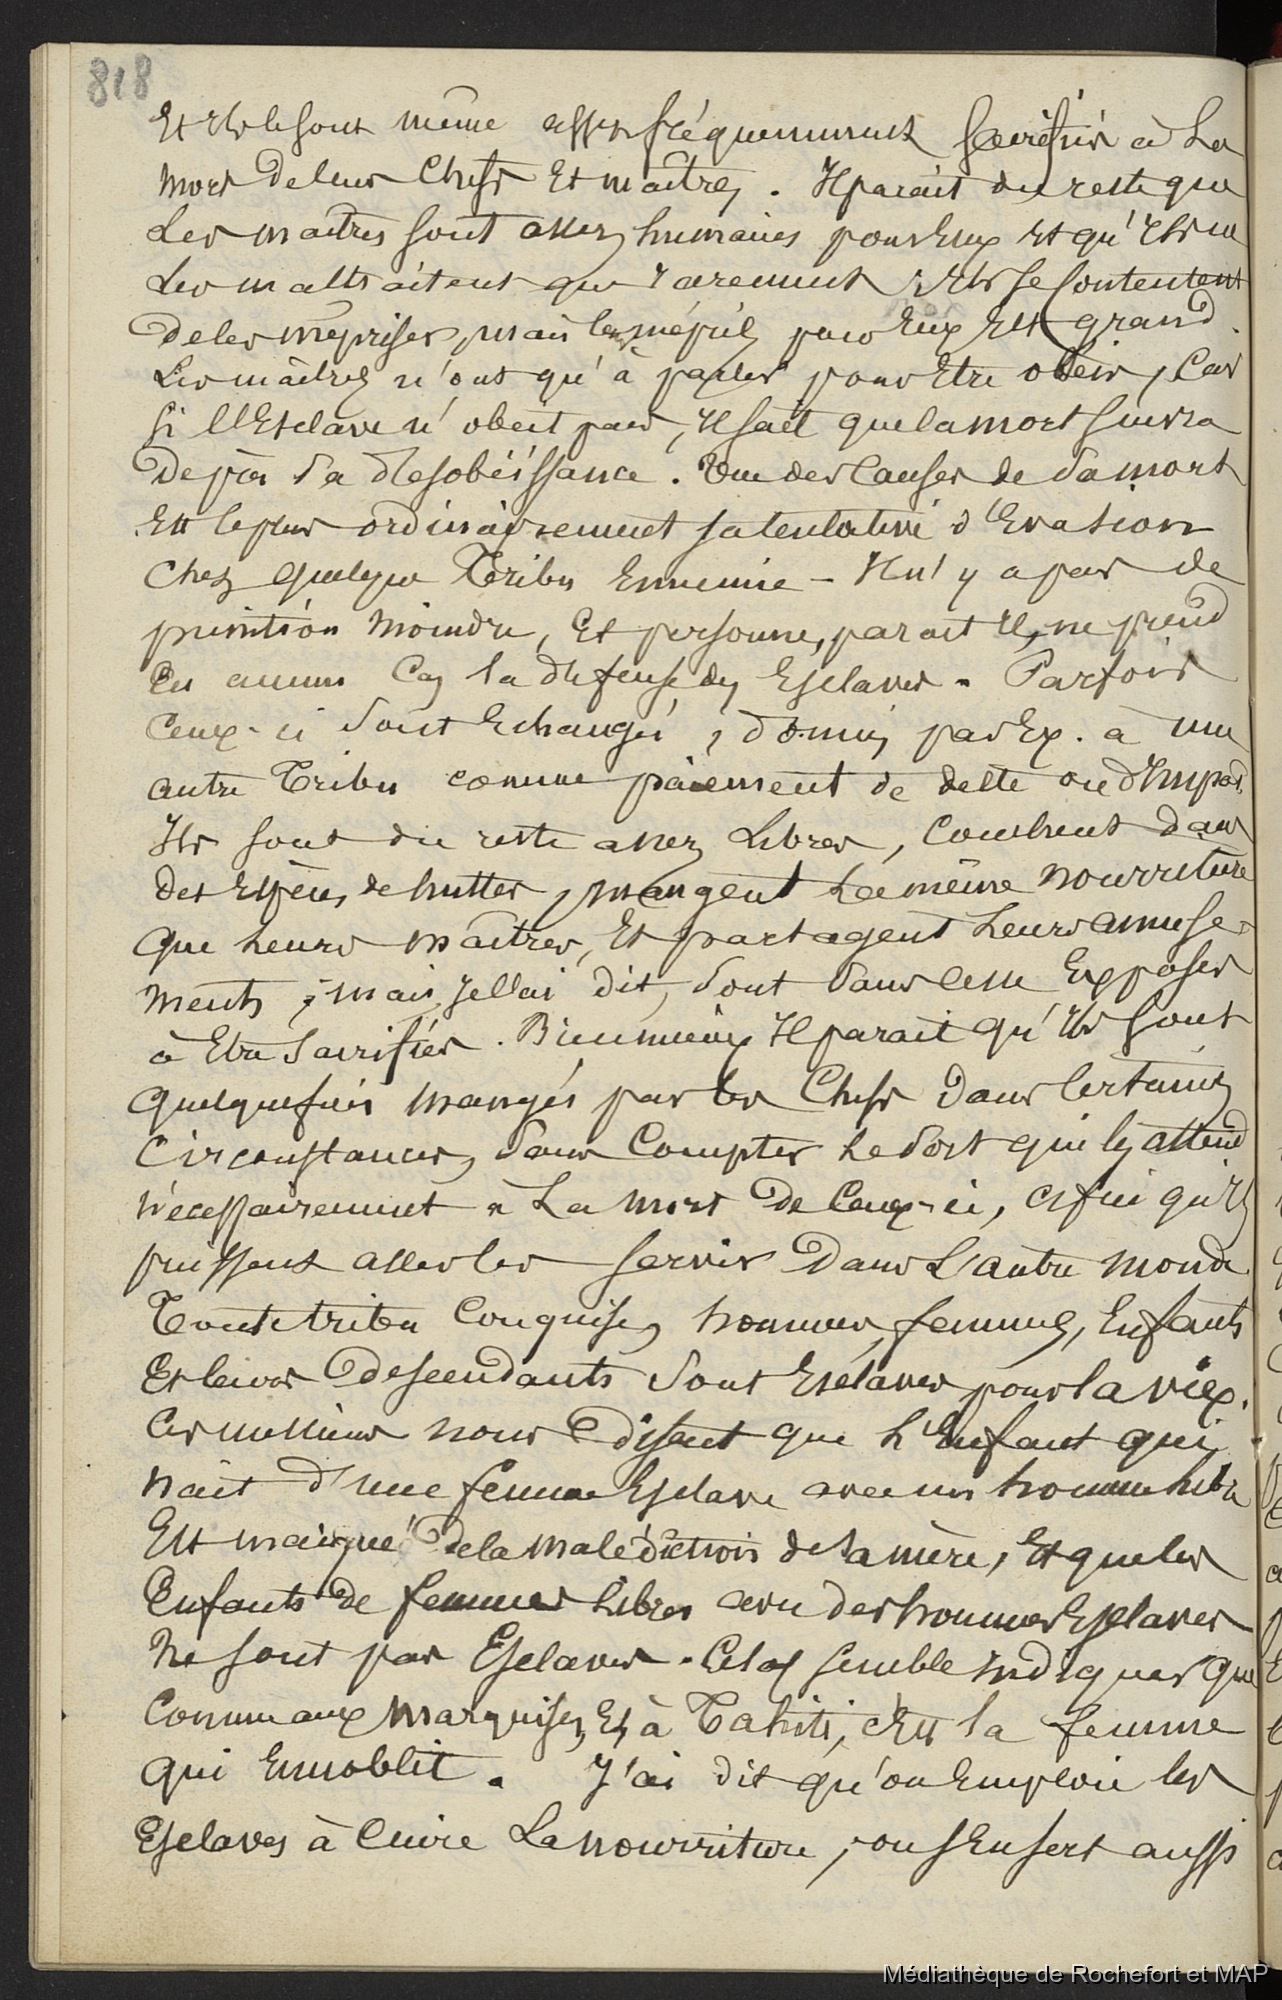 818
Et ils le sont même assez fréquemment sacrifiés à La
mort de leurs Chefs Et maîtres . Il parait du reste que
Les maîtres sont assez humains pour Eux Et qu'ils ne
Les maltraitent que rarement , ils se Contentent
De les mépriser, mais le mépris pour Eux Est grand .
Les maîtres n'ont qu'à parler pour Etre obéis , Car
Si l'Esclave n'obeit pas , il sait que la mort suivra
De près Sa désobéissance . Une des Causes de Sa mort
Est le plus ordinairement sa tentative d'Evasion
Chez quelque Tribu Ennemie - Il n'y a pas de
punition moindre, Et personne, parait il, ne prend
En aucun Cas la défense des Esclaves . Parfois
Ceux-ci Sont Echangés , donnés par Ex. à une
autre Tribu comme paiement de dette ou d'Impot.
Ils sont du reste assez Libres , Couchent dans
des Espèces de huttes , mangent La même nourriture
que Leurs maîtres, Et partagent Leurs amuse-
ments ; mais, je l'ai dit, Sont Sans Cesse Exposés
à Etre Sacrifiés . Bien mieux Il parait qu'ils sont
quelquefois mangés par les Chefs Dans Certaines
Circonstances, Sans Compter Le Sort qui les attend
nécessairement à La mort De Ceux-ci, afin qu'ils
puissent aller les servir Dans L'autre monde
Toute tribu Conquise, hommes, femmes, Enfants
Et leurs Descendants Sont Esclaves pour la vie.
Ces messieurs nous Disent que L'Enfant qui
nait d'une femme Esclave avec un homme libre
Est marqué De la malédiction de Sa mère, Et que les
Enfants de femmes Libres avec des hommes Esclaves
Ne sont pas Esclaves . Cela semble indiquer que
Comme aux Marquises, Et à Tahiti, c'Est la femme
qui Ennoblit . J'ai dit qu'on Emploie les
Esclaves à Cuire La nourriture , on s'En sert aussi
Médiathèque de Rochefort et MAP